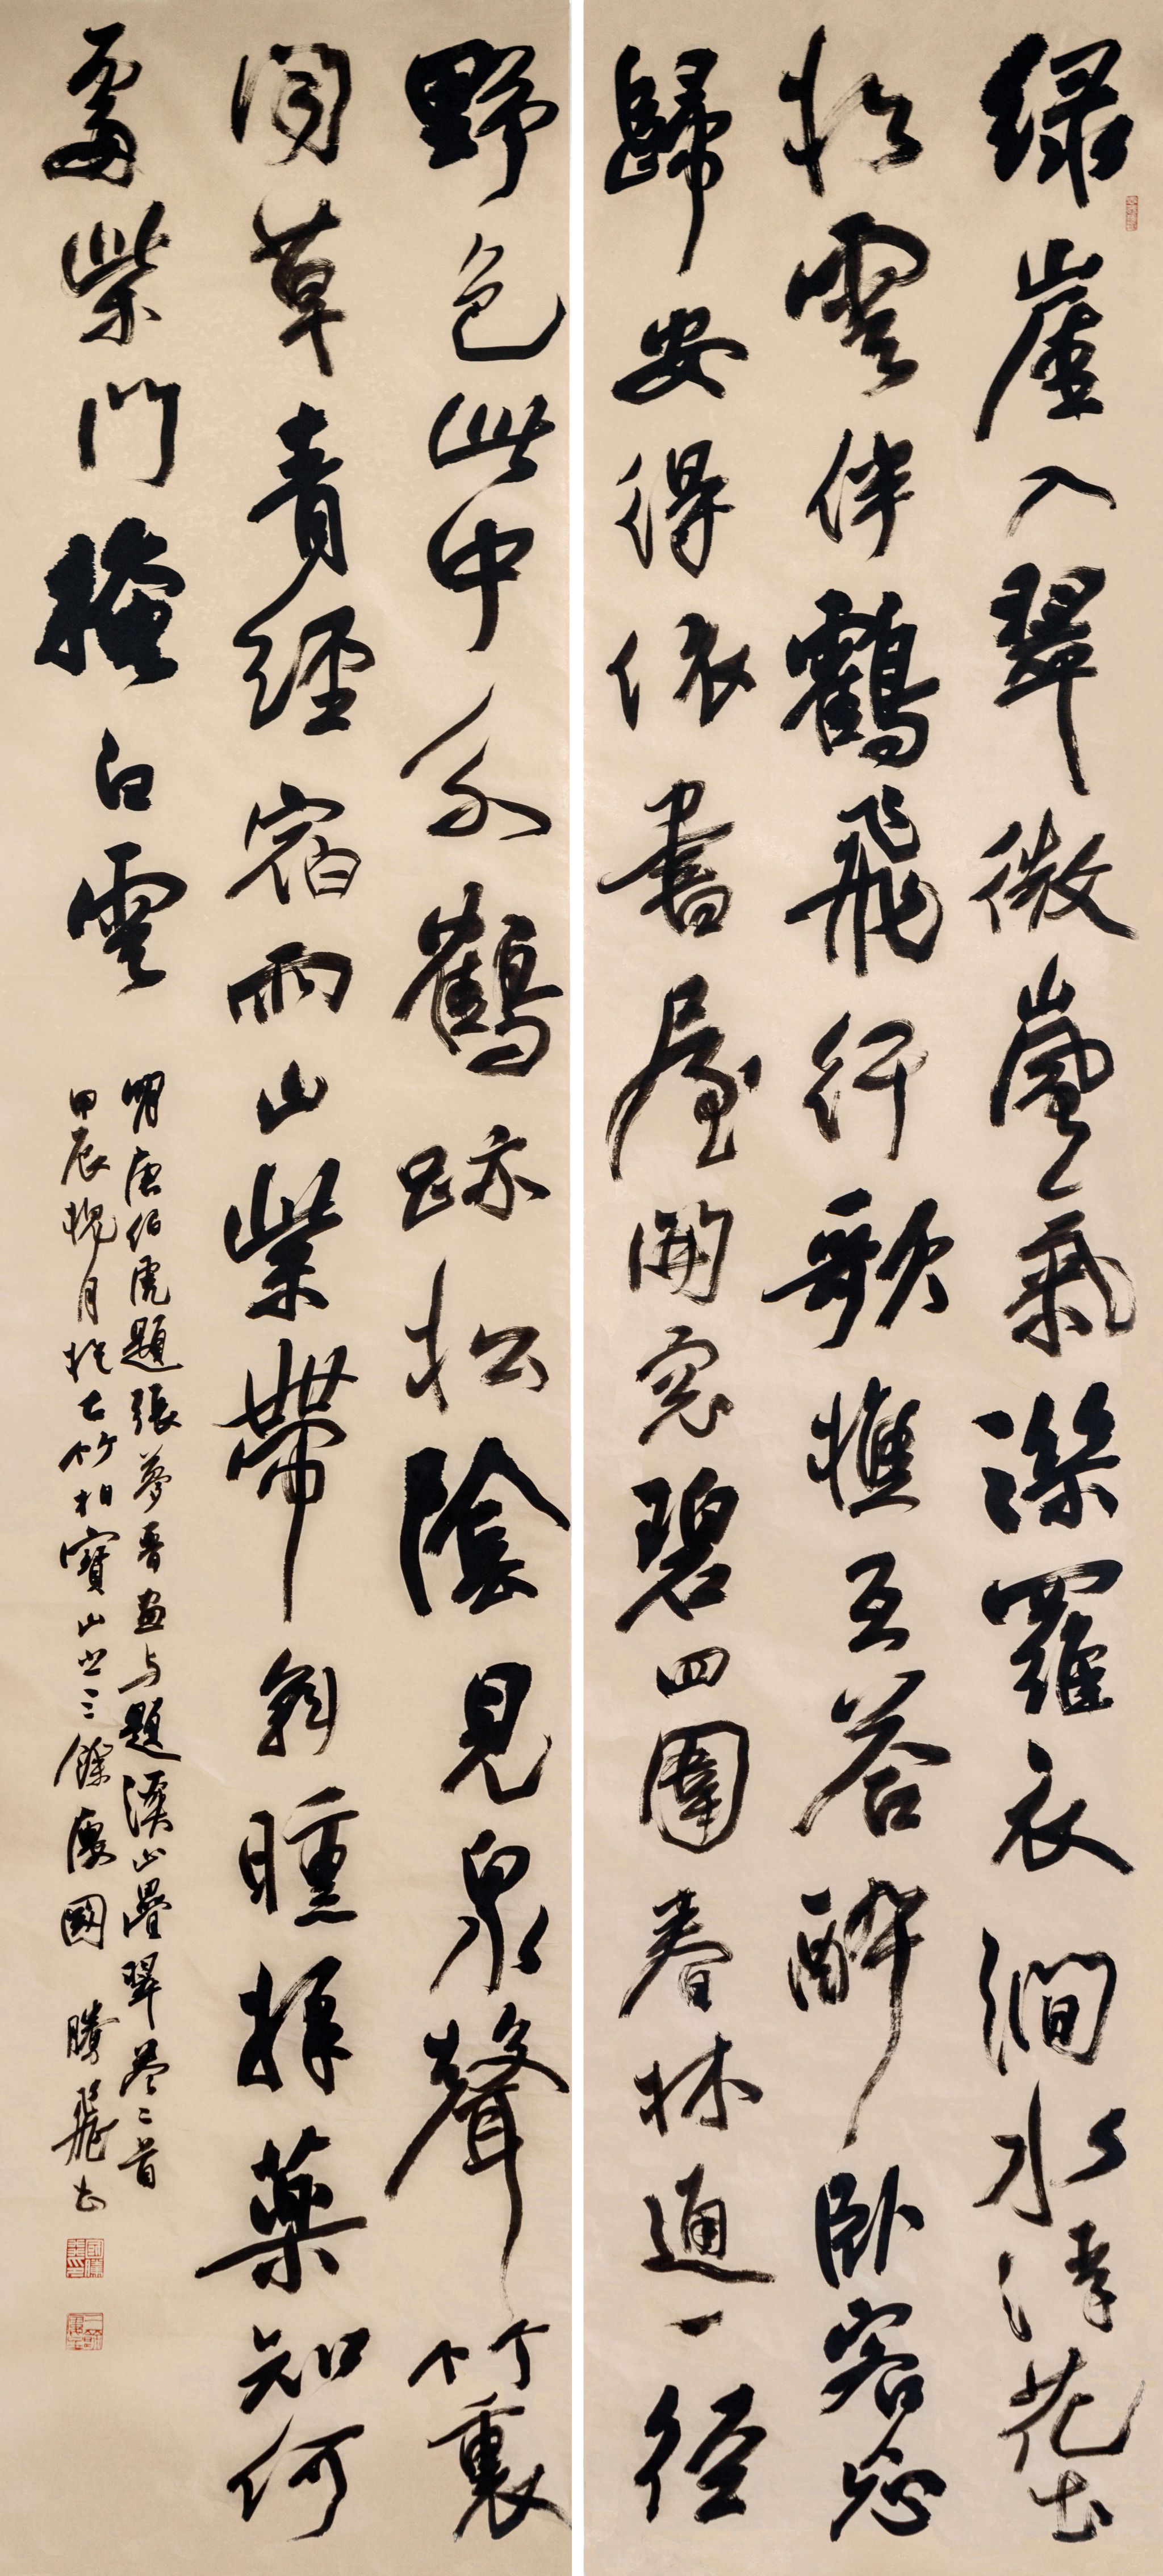 绿崖入翠微嵐氣濕羅衣澗水浮花出
松雲伴鶴飛行歌樵互答醉卧客忘
歸安得依書屋開窓碧四圍春林通一徑
野色此中分鶴跡松陰見泉聲竹裏
聞草青經宿雨山紫帶斜曛採藥知何
處柴門掩白雲
明唐伯虎題張夢晋畫与題溪山疊翠卷二首
甲辰槐月於竹柏寶山三餘廬國騰飛書